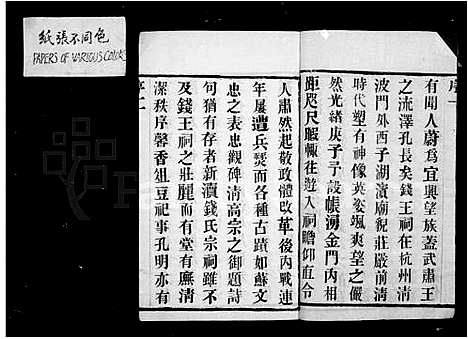 紙張不同色
PAPERS OF VARIOUS COLORS
序一
有聞人蔚爲宜興望族蓋武肅王
之流澤孔長矣錢王祠在杭州清
波門外西子湖濱廟貌莊嚴前淸
時代塑有神像英姿颯爽望之儼
然光緒庚子予設帳湧金門內相
距咫尺暇輒往遊入祠瞻仰直令
人肅然起敬政體改革後內戰連
年屢遭兵燹而各種古蹟如蘇文
忠之表忠觀碑淸高宗之御題詩
句猶有存者新瀆錢氏宗祠雖不
及錢王祠之壯麗而有堂有廡淸
潔秩序馨香俎豆祀事孔明亦有
序二